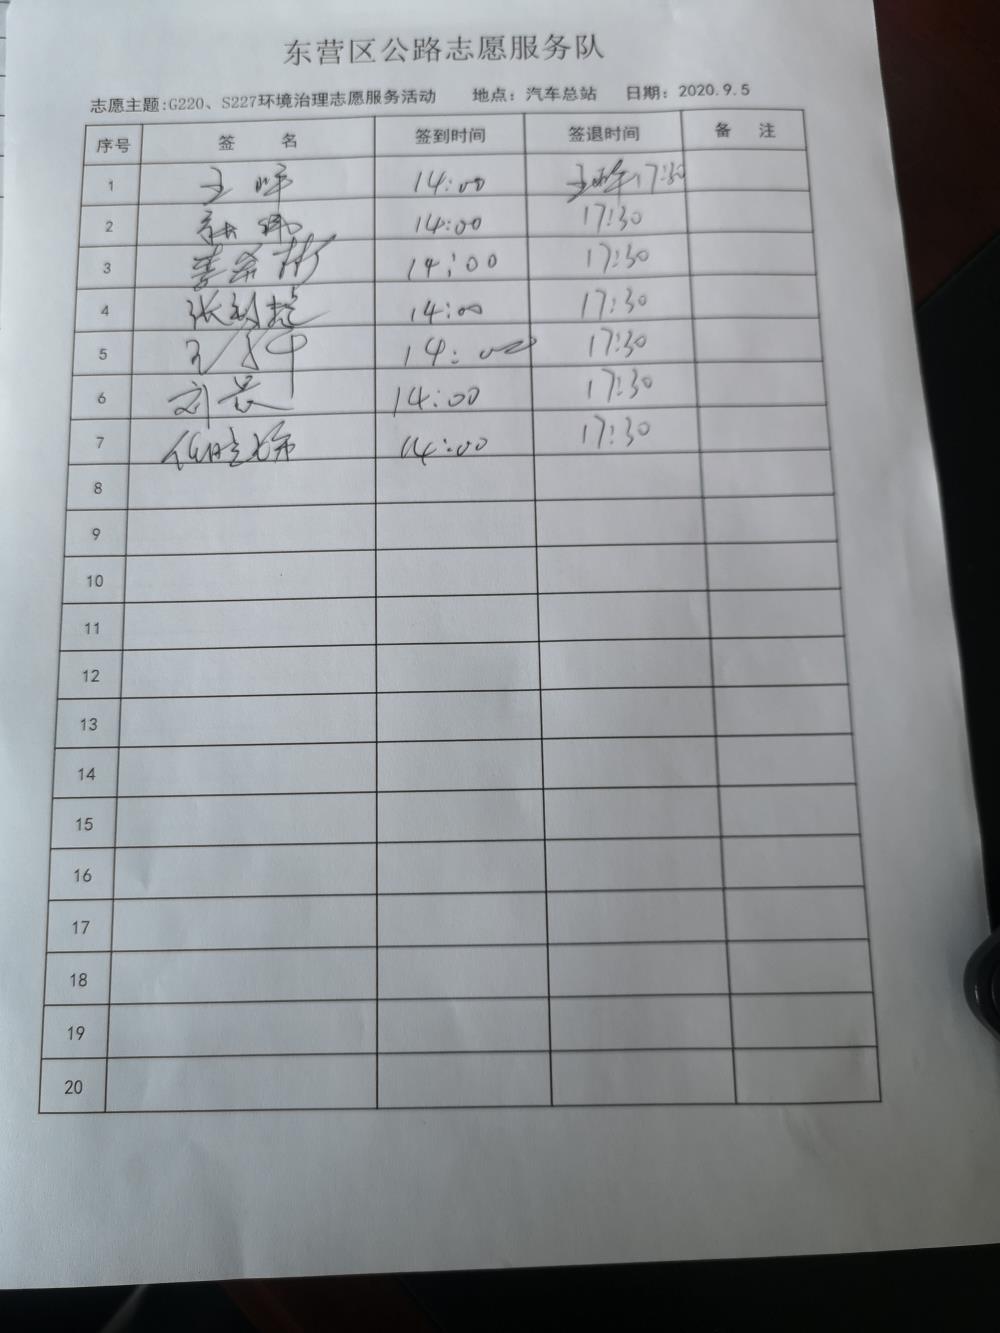 东营区公路志愿服务队
志愿主题:G220、S227环境治理志愿服务活动 地点：汽车总站 日期：2020.9.5
序号 签 名 签到时间 签退时间 备 注
1 14:00 17:30
2 14:00 17:30
3 14:00 17:30
4 张 14:00 17:30
5 14:00 17:30
6 刘 14:00 17:30
7 14:00 17:30
8
9
10
11
12
13
14
15
16
17
18
19
20